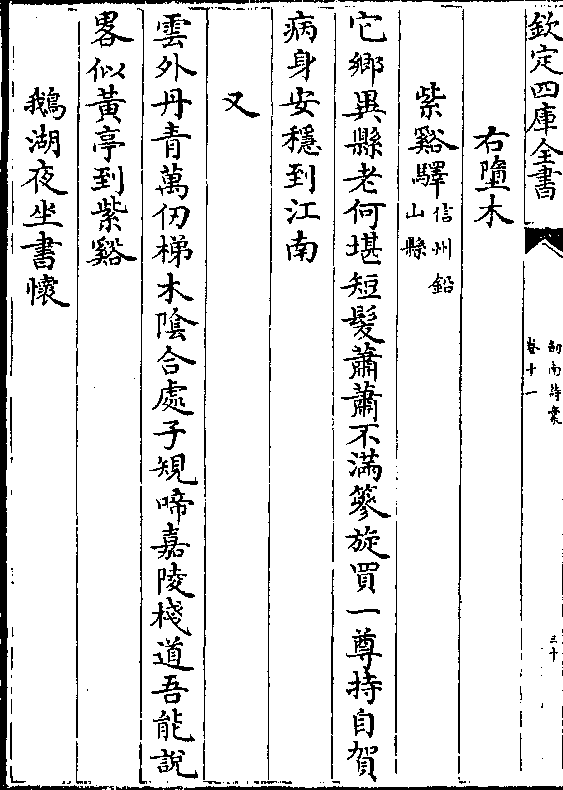 欽定四庫全書
劍南詩稾
卷十一
三十
右墮木
紫谿驛信州鉛山縣
它鄉異縣老何堪短髮蕭蕭不滿簪旋買一尊持自賀
病身安穩到江南
又
雲外丹青萬仞梯木陰合處子規啼嘉陵棧道吾能說
畧似黃亭到紫谿
鵝湖夜坐書懷